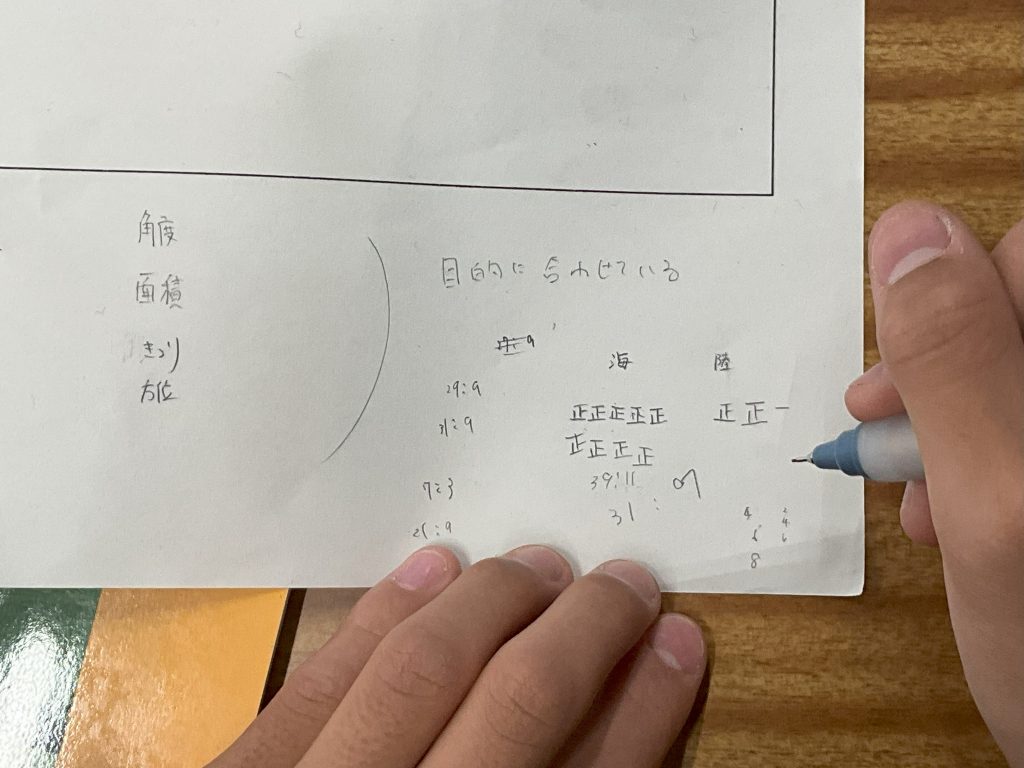 角度
面積
きょり
方位
目的に合わせている
海 陸
29:9
31:9
正正正正正 正正一
正正正正
39:11
31:
7:3
21:9
4 2
6 4
8 6